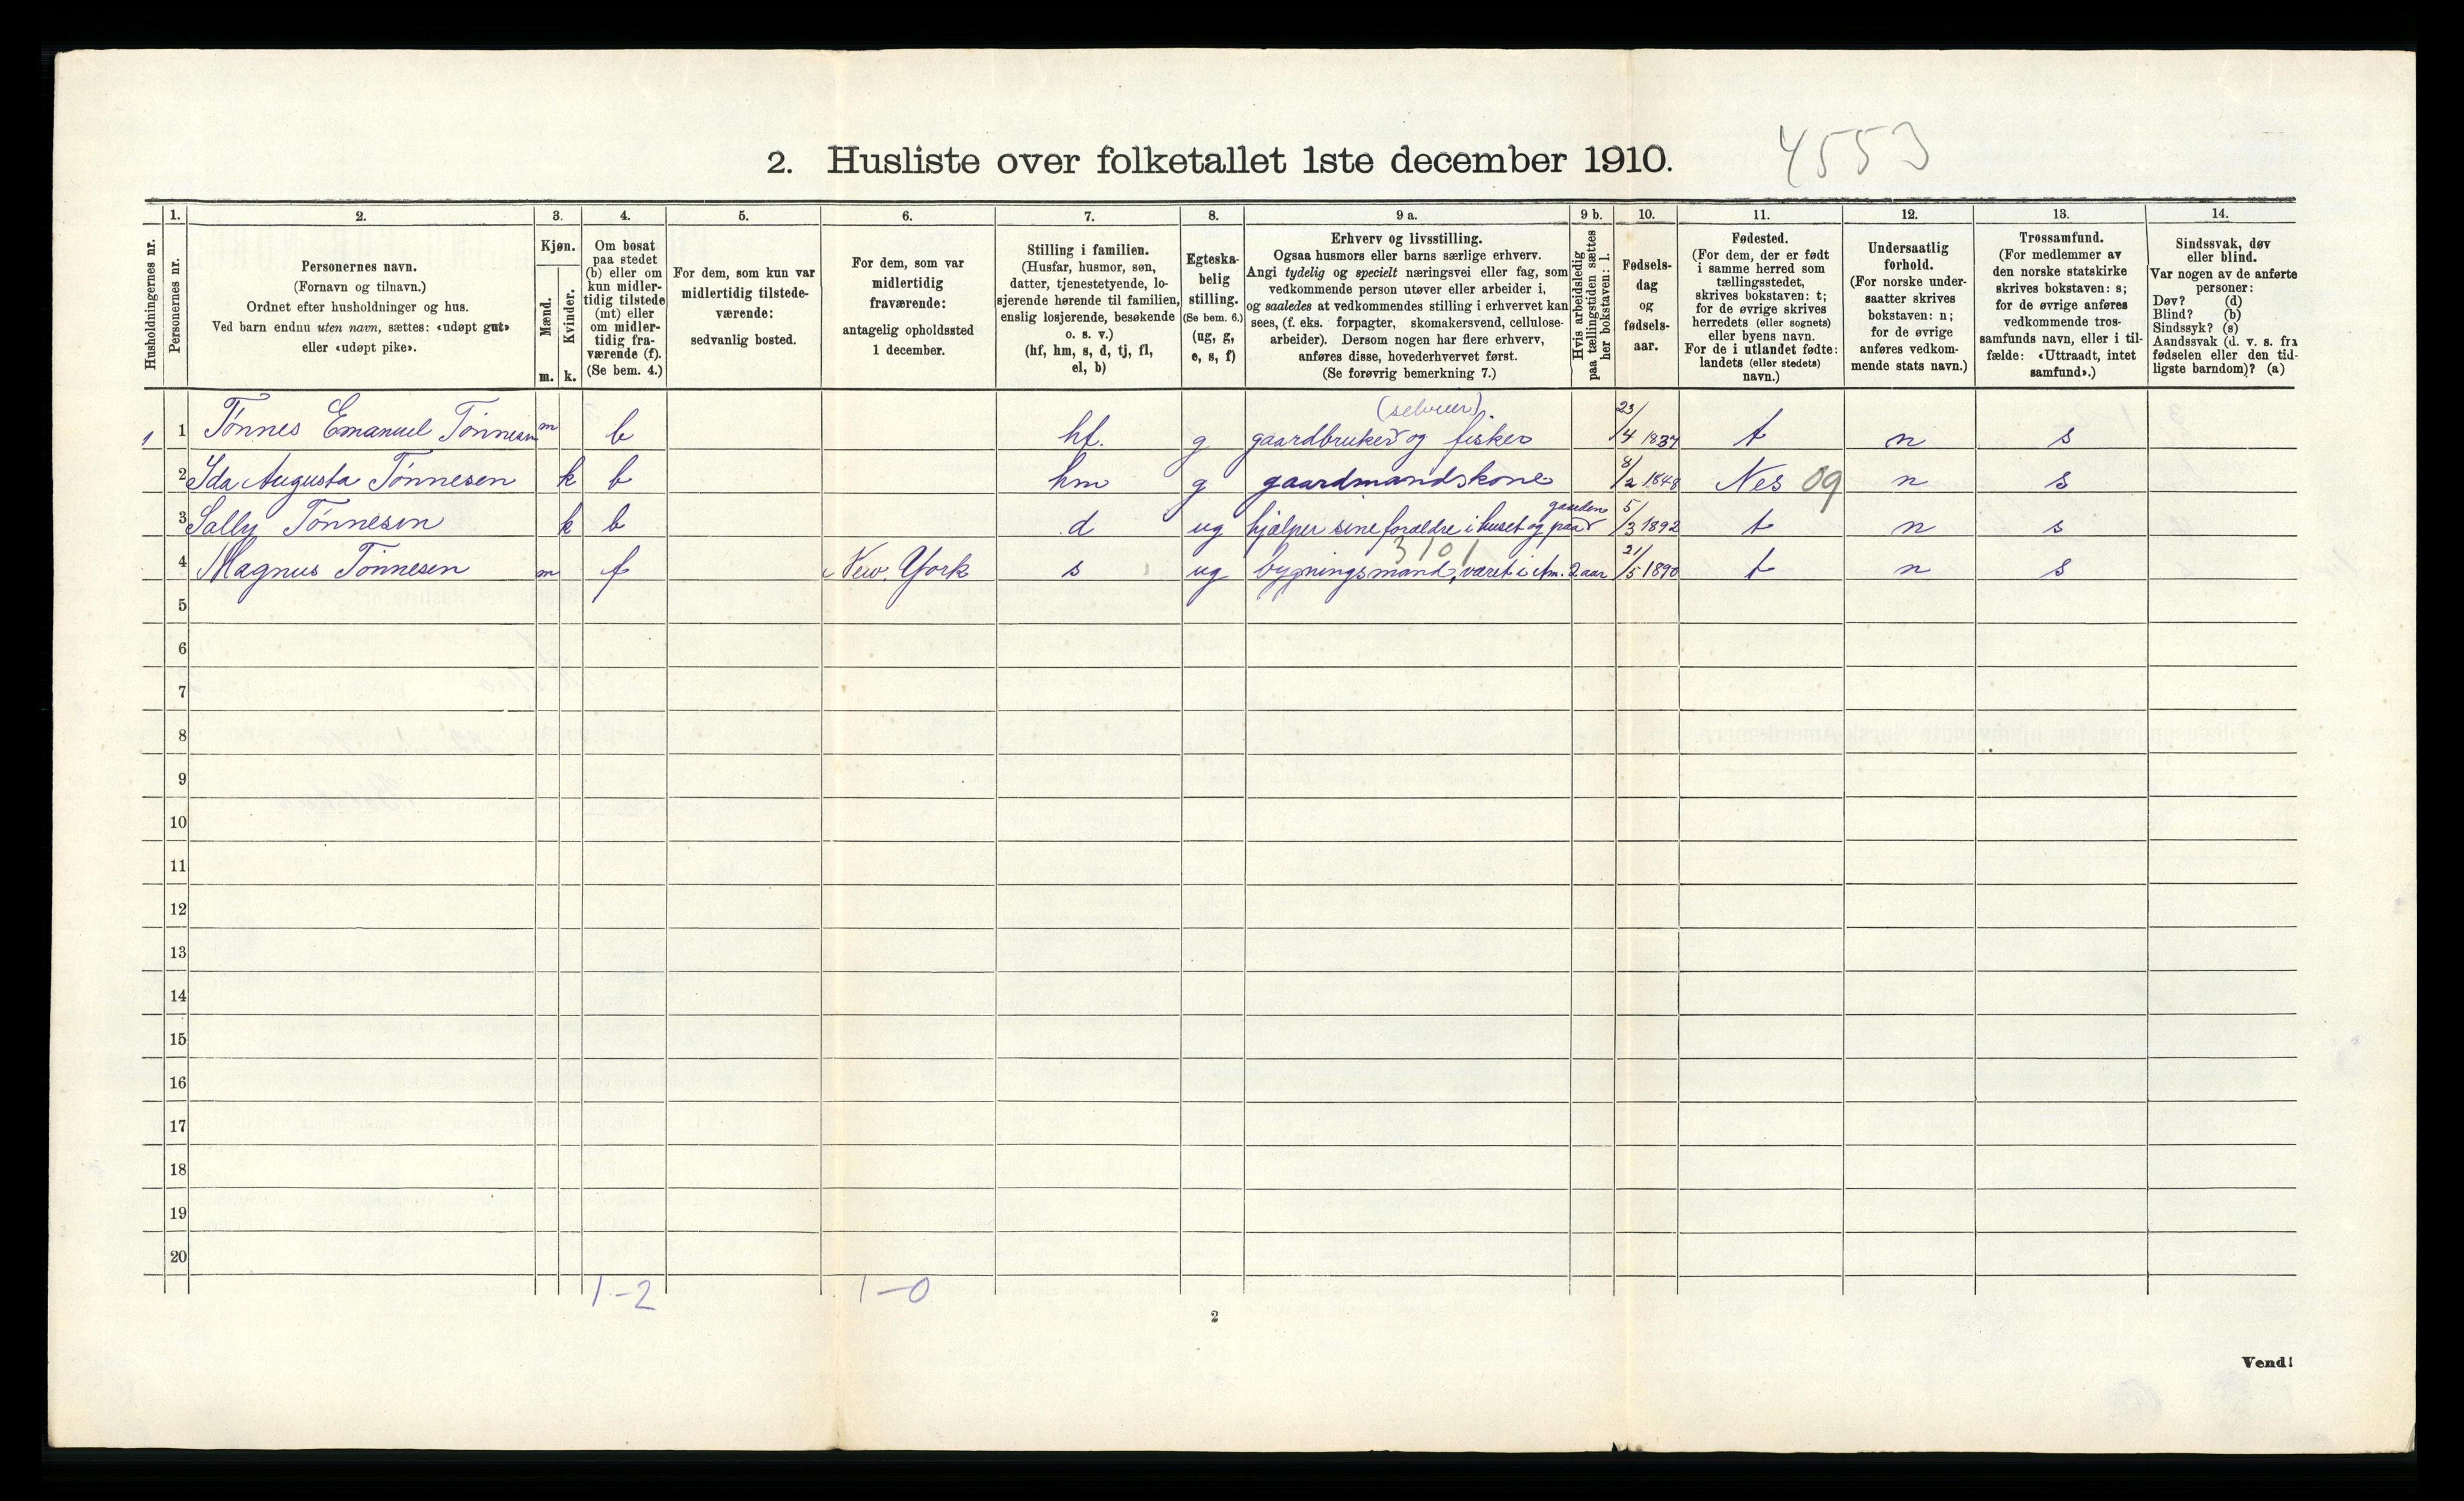 2. Husliste over folketallet 1ste december 1910. 4553
Husholdningernes nr.
1. Personernes nr.
2. Personernes navn. (Fornavn og tilnavn.) Ordnet efter husholdninger og hus. Ved barn endnu uten navn, sættes: «udøpt gut» eller «udøpt pike».
3. Kjøn. Mænd. m. Kvinder. k.
4. Om bosat paa stedet (b) eller om kun midlertidig tilstede (mt) eller om midlertidig fraværende (f). (Se bem. 4.)
5. For dem, som kun var midlertidig tilstedeværende: sedvanlig bosted.
6. For dem, som var midlertidig fraværende: antagelig opholdssted 1 december.
7. Stilling i familien. (Husfar, husmor, søn, datter, tjenestetyende, losjerende hørende til familien, enslig losjerende, besøkende o. s. v.) (hf, hm, s, d, tj, fl, el, b)
8. Egteskabelig stilling. (Se bem. 6.) (ug, g, e, s, f)
9 a. Erhverv og livsstilling. Ogsaa husmors eller barns særlige erhverv. Angi tydelig og specielt næringsvei eller fag, som vedkommende person utøver eller arbeider i, og saaledes at vedkommendes stilling i erhvervet kan sees, (f. eks. forpagter, skomakersvend, cellulosearbeider). Dersom nogen har flere erhverv, anføres disse, hovederhvervet først. (Se forøvrig bemerkning 7.)
9 b. Hvis arbeidsledig paa tællingstiden sættes her bokstaven: l.
10. Fødselsdag og fødselsaar.
11. Fødested. (For dem, der er født i samme herred som tællingsstedet, skrives bokstaven: t; for de øvrige skrives herredets (eller sognets) eller byens navn. For de i utlandet fødte: landets (eller stedets) navn.)
12. Undersaatlig forhold. (For norske undersaatter skrives bokstaven: n; for de øvrige anføres vedkommende stats navn.)
13. Trossamfund. (For medlemmer av den norske statskirke skrives bokstaven: s; for de øvrige anføres vedkommende trossamfunds navn, eller i tilfælde: «Uttraadt, intet samfund».)
14. Sindssvak, døv eller blind. Var nogen av de anførte personer: Døv? (d) Blind? (b) Sindssyk? (s) Aandssvak (d. v. s. fra fødselen eller den tidligste barndom)? (a)
1 1 Tønnes Emanuel Tønnesen m b hf. g gaardbruker (selveier). og fisker 23/4 1837 t n s
2 Ida Augusta Tønnesen k b hm g gaardmandskone 8/2 1848 Nes 09 n s
3 Sally Tønnesen k b d ug hjælper sine forældre i huset og paa gaarden 5/3 1892 t n s
4 Magnus Tønnesen m f New. York s ug bygningsmand, været i Am. 2 aar 3101 21/5 1890 t n s
5
6
7
8
9
10
11
12
13
14
15
16
17
18
19
20
1-2 1-0
2
Vend!